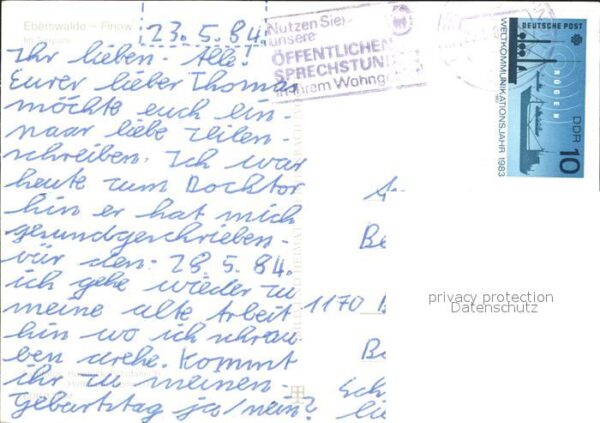 Eberswalde - Finow
23.5.84.
Ihr lieben. Alle!
Eurer lieber Thomas
möchte euch ein-
naar liebe Zeilen
schreiben. Ich war
heute zum Docktor
hin er hat mich
gesundgeschrieben-
vür den. 28.5.84.
ich gehe wieder zu
meine alte Arbeit
hin wo ich schrau
ben drehe. Kommt
ihr zu meinen
Geburtstag ja/nein?
Nutzen Sie
unsere
ÖFFENTLICHEN
SPRECHSTUN
in Ihrem Wohnge
DEUTSCHE POST
WELTKOMMUNIKATIONSJAHR 1983
RÜGEN
DDR
10
A
Be
1170 B
Be
Sch
lie
privacy protection
Datenschutz